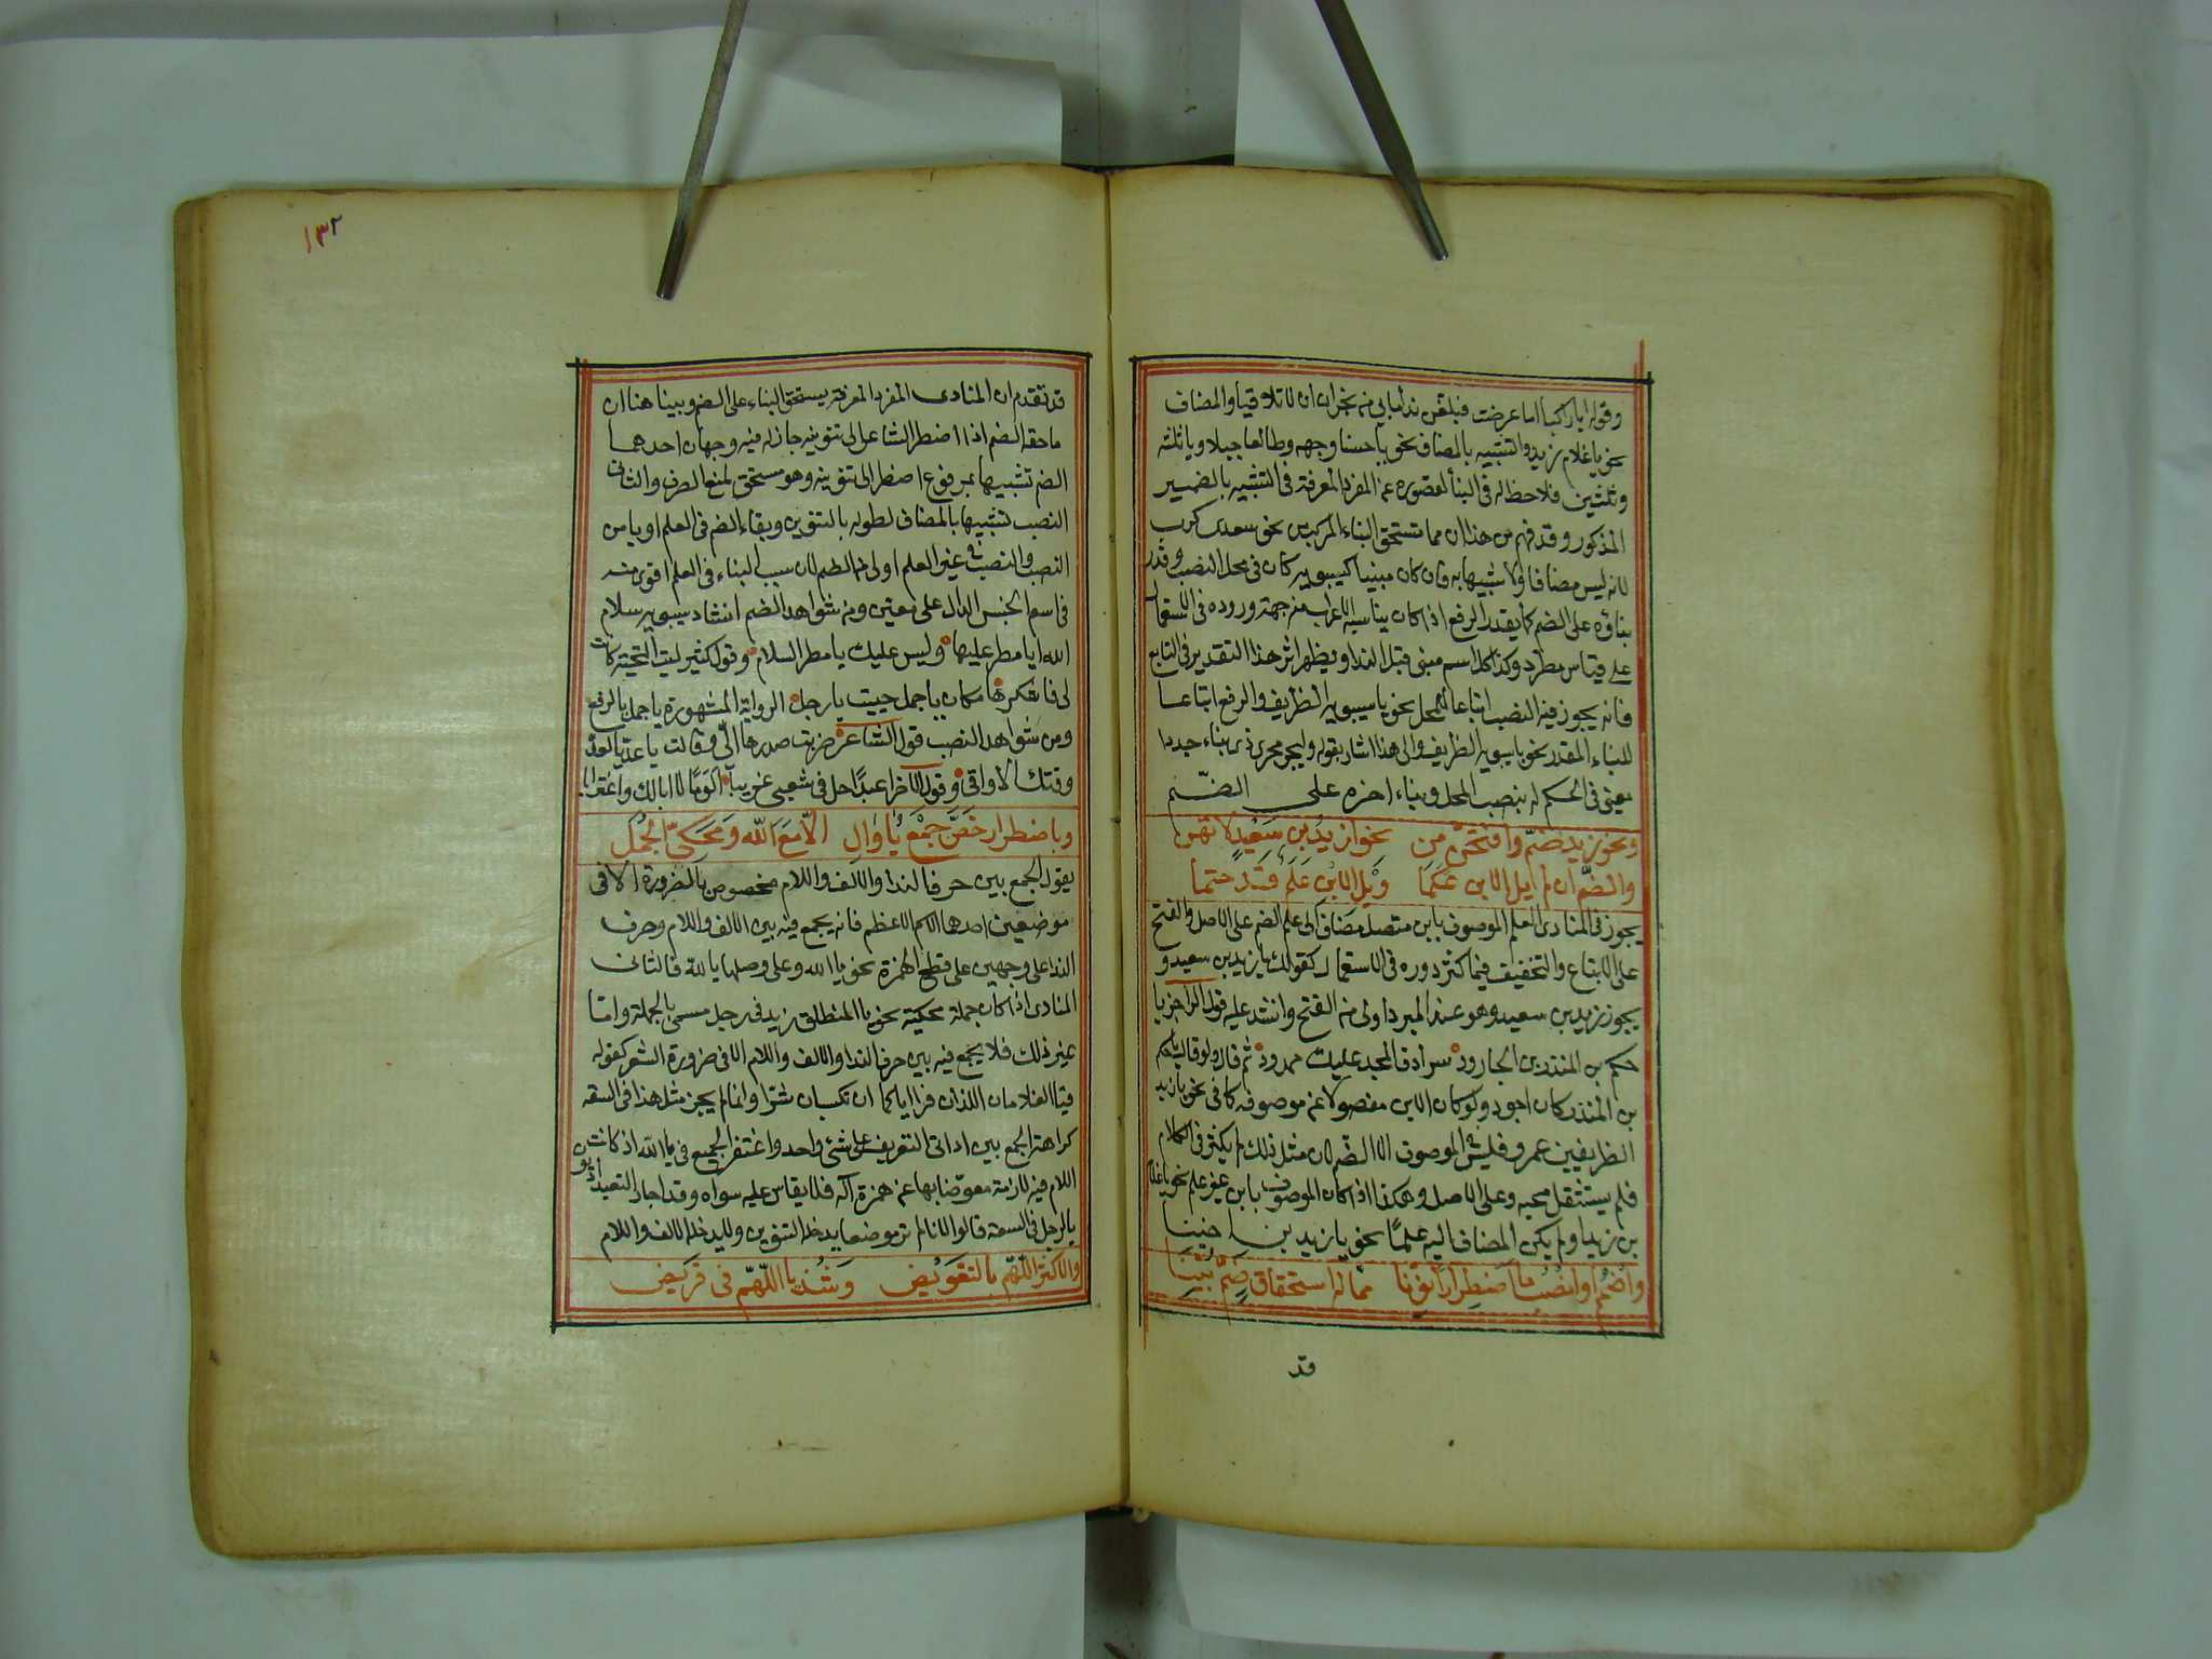 وقوله ايا راكبا اما عرضت فبلغن نداماي من نجران ان لا تلاقيا والمضاف
نحو يا غلام زيد والشبيه بالمضاف نحو يا حسنا وجهه وطالعا جبلا ويا ثلثة
وثلثين فلا حظ له في البنأ لقصوره عن المفرد المعرفة في التشبيه بالضمير
المذكور وقد فهم من هذا ان مما تستحق البناء المركب نحو معدى كرب
لانه ليس مضافا ولا شبيها به فان كان مبنيا كسيبويه كان في محل النصب وقدر
بناؤه على الضم كما يقدر الرفع اذا كان يناسبه الاعراب من جهة وروده في الاستعمال
على قياس مطرد وكذا كل اسم مبني قبل الندا ويظهر اثر هذا التقدير في التابع
فانه يجوز فيه النصب اتباعا للمحل نحو يا سيبويه الظريف والرفع اتباعا
للبناء المقدر نحو يا سيبويه الظريف والى هذا اشار بقوله وليجر مجرى ذى بناء جددا
يعني في الحكم له بنصب المحل وبناء اخره على الضم
ونحو زيد ضم وافتحن من نحو ازيد بن سعيد لا تهن
والضم ان لم يل الابن علما ويل الابن علم قد حتما
يجوز في المنادى العلم الموصوف بابن متصل مضاف الى علم الضم على الاصل والفتح
على الاتباع والتخفيف فيما كثر دوره في الاستعمال كقولك يا زيد بن سعيد و
يجوز زيد بن سعيد وهو عند المبرد اولى من الفتح وانشد عليه قول الراجز يا
حكم بن المنذر بن الجارود سرادق المجد عليك ممدود ثم قال ولو قال يا حكم
بن المنذر كان اجود ولو كان الابن مفصولا عن موصوفه كما في نحو يا زيد
الظريف بن عمرو فليس في الموصوف الا الضم لان مثل ذلك لم يكثر في الكلام
فلم يستثقل مجيه وعلى الاصل وهكذا اذا كان الموصوف بابن غير علم نحو يا غلام
بن زيد او لم يكن المضاف اليه علما نحو يا زيد بن اخينا
واضمم او انصب ما اضطرارا نونا مما له استحقاق ضم بينا
قد
١٣٢
قد تقدم ان المنادى المفرد المعرفة يستحق البناء على الضم وبينا هنا ان
ما حقه الضم اذا اضطر الشاعر الى تنوينه جاز له فيه وجهان احدهما
الضم تشبيها بمرفوع اضطر الى تنوينه وهو مستحق لمنع الصرف والثاني
النصب تشبيها بالمضاف لطوله بالتنوين وبقاء الضم في العلم اولى من
النصب والنصب في غير العلم اولى من الضم لان سبب البناء في العلم اقوى منه
في اسم الجنس الدال على معين ومن شواهد الضم انشاد سيبويه سلام
الله يا مطر عليها وليس عليك يا مطر السلام وقول كثير ليت التحية كانت
لي فاشكرها مكان يا جمل حييت يا رجل الرواية المشهورة يا جمل بالرفع
ومن شواهد النصب قول الشاعر ضربت صدرها الي وقالت يا عديا لقد
وقتك الاواقي وقول الاخر اعبدا حل في شعبى غريبا الؤما لا ابالك واغترابا
وباضطرار خص جمع يا وال الا مع الله ومحكي الجمل
يقول الجمع بين حرف الندا والالف واللام مخصوص بالضرورة الا في
موضعين احدهما الاسم الاعظم فانه يجمع فيه بين الالف واللام وحرف
الندا على وجهين على قطع الهمزة نحو يا الله وعلى وصلها يا لله فالثاني
المنادى اذا كان جملة محكية نحو يا المنطلق زيد في رجل مسمى بالجملة واما
غير ذلك فلا يجمع فيه بين حرف الندا والالف واللام الا في ضرورة الشعر كقوله
فيا الغلامان اللذان فرا اياكما ان تكسبان شرا وانما لم يجز مثل هذا في السعة
كراهة الجمع بين اداتى التعريف على شئ واحد واغتفر الجمع في يا الله اذ كانت
اللام فيه لازمة معوضا بها عن همزة اله فلا يقاس عليه سواه وقد اجاز البغداديون
يا الرجل في السعة قالوا لانا لم نر موضعا يدخله التنوين ولا يدخله الالف واللام
والاكثر اللهم بالتعويض وشذ يا اللهم في قريض